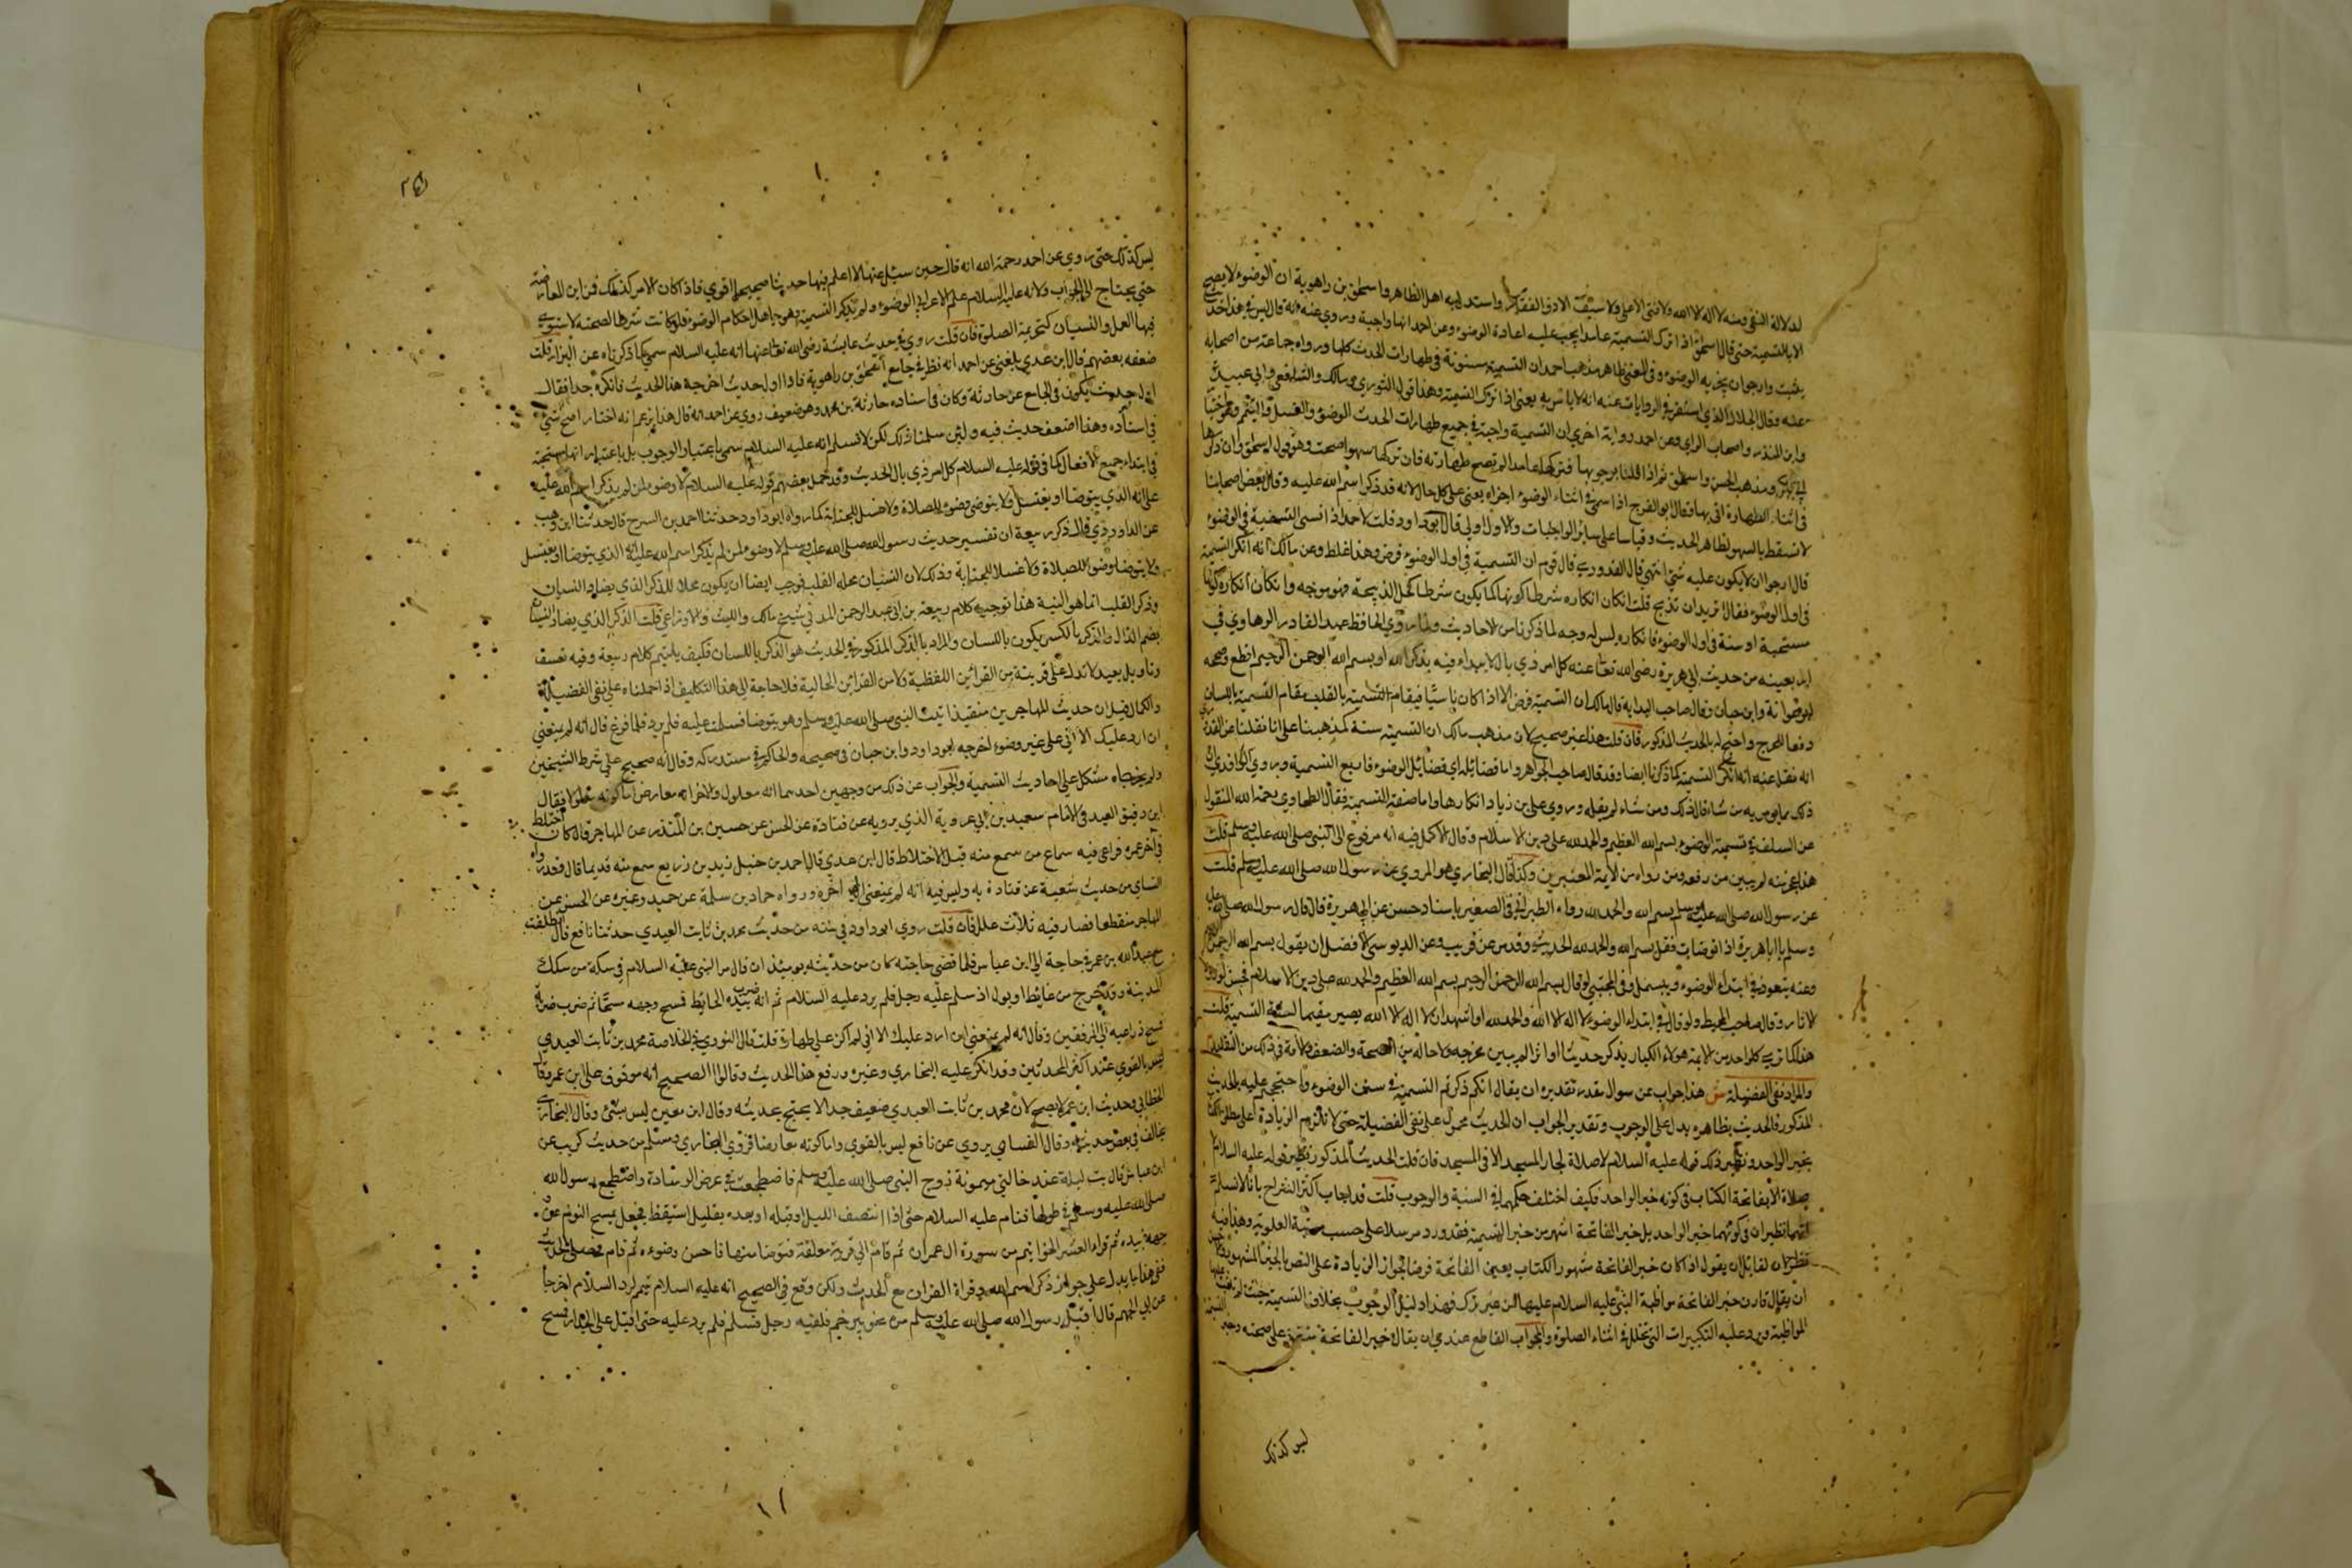 لدلالة النفي ومنه لا اله الا الله ولا فتى الا علي ولا سيف الا ذو الفقار واستدل به اهل الظاهر واسحق بن راهوية ان الوضوء لا يصح
الا بالتسمية حتى قال اسحق اذا ترك التسمية عامدا يجب عليه اعادة الوضوء وعن احد انها واجبة وروي عنه انه قال ليس في هذا حديث
يثبت وارجو ان يجزيه الوضوء وفي المغني ظاهر مذهب احمد ان التسمية مسنونة في طهارات الحدث كلها ورواه جماعة من اصحابه
عنه وقال الخلال الذي استقر في الروايات عنه انه لا باس به يعني اذا ترك التسمية وهذا قول الثوري ومالك والشافعي وابي عبيدة
وابن المنذر واصحاب الراي وعن احمد رواية اخرى ان التسمية واجبة في جميع طهارات الحدث الوضوء والغسل والتيمم وهو اختيار
ابي بكر ومذهب الحسن واسحق ثم اذا قلنا بوجوبها فتركها عامدا لم تصح طهارته فان تركها سهوا صحت وهو قول اسحق وان ذكرها
في اثناء الطهارة اتى بها وقال ابو الفرج اذا سمى في اثناء الوضوء اجزاه يعني على كل حال لانه قد ذكر اسم الله عليه وقال بعض اصحابنا
لا تسقط بالسهو لظاهر الحديث وقياسا على سائر الواجبات والاول اولى قال ابو داود قلت لاحمد اذا نسي التسمية في الوضوء
قال ارجو ان لا يكون عليه شيء انتهى قال القدوري قال قوم ان التسمية في اول الوضوء فرض وهذا غلط وعن مالك انه انكر التسمية
في اول الوضوء فقال اتريد ان تذبح قلت ان كان انكاره شرطا كونها كما يكون شرطا لحل الذبيحة فهو موجه وان كان انكاره كونها
مستحبة او سنة في اول الوضوء فانكاره ليس له وجه لما ذكرنا من الاحاديث ولما روي الحافظ عبد القادر الرهاوي في
اربعينه من حديث ابي هريرة رضى الله تعا عنه كل امر ذي بال لا يبداء فيه بذكر الله او بسم الله الرحمن الرحيم اقطع وصححه
ابو عوانة وابن حبان وقال صاحب البدايه قال مالك ان التسمية فرض الا اذا كان ناسيا فيقام التسمية بالقلب مقام التسمية باللسان
دفعا للحرج واحتج له بالحديث المذكور فان قلت هذا غير صحيح لان مذهب مالك ان التسمية سنة كمذهبنا على انا نقلنا عن القدوري
انه نقل عنه انه انكر التسمية كما ذكرنا ايضا وقد قال صاحب الجواهر واما فضائله اي فضائل الوضوء فاربع التسمية وروي الواقدي ان
ذلك مما يومر به من شاء قال ذلك ومن شاء لم يقله وروي علي بن زياد انكارها واما صفة التسمية فقال الطحاوي رحمة الله المنقول
عن السلف في تسمية الوضوء بسم الله العظيم والحمد لله على دين الاسلام وقال الاكمل فيه انه مرفوع الى النبي صلى الله عليه وسلم قلت
هذا عجز منه لم يبين من رفعه ومن رواه من الايمة المعتبرين وكذا قال البخاري هو المروي عن رسول الله صلى الله عليه وسلم قلت
عن رسول الله صلى الله عليه وسلم بسم الله والحمد لله رواه الطبراني في الصغير باسناد حسن عن ابي هريرة قال قال رسول الله صلى الله عليه
وسلم يا ابا هريرة اذا توضات فقل بسم الله والحمد لله الحديث وقد مر عن قريب وعن الدبوسي الافضل ان يقول بسم الله الرحمن الرحيم
وعنه يتعوذ في ابتداء الوضوء ويبسمل وفي المجتبى لو قال بسم الله الرحمن الرحيم بسم الله العظيم والحمد لله على دين الاسلام فحسن لورود
الاثار وقال صاحب المحيط ولو قال في ابتداء الوضوء لا اله الا الله والحمد لله او اشهد ان لا اله الا الله يصير مقيما لسنة التسمية قلت
هذا كما تري كل واحد من الايمة هولاء الكبار يذكر حديثا او اثرا لم يبين مخرجه ولا حاله من الصحة والضعف والافة في ذلك من التقليد
والمراد نفي الفضيلة ش هذا جواب عن سوال مقدر تقديره ان يقال انكم ذكرتم التسمية في سنن الوضوء واحتججتم عليه بالحديث
المذكور والحديث بظاهره يدل على الوجوب وتقدير الجواب ان الحديث محمول على نفي الفضيلة حتى لا تلزم الزيادة على مطلق الكتاب
بخبر الواحد ونظير ذلك قوله عليه السلام لا صلاة لجار المسجد الا في المسجد فان قلت الحديث المذكور نظير قوله عليه السلام
لا صلاة الا بفاتحة الكتاب في كونه خبر الواحد فكيف اختلف حكمهما في السنية والوجوب قلت قد اجاب اكثر الشراح بانا لا نسلم
انهما نظيران في كونهما خبر الواحد بل خبر الفاتحة اشهر من خبر التسمية فقدورد مرسلا على حسب مرتبة العلوية وهذا فيه
نظر لان لقائل ان يقول اذا كان خبر الفاتحة مشهورا لكان تعيين الفاتحة فرضا لجواز الزيادة على النص بالخبر المشهور
ان يقال قارن خبر الفاتحة مواظبة النبي عليه السلام عليها من غير ترك فهذا دليل الوجوب بخلاف التسمية حيث لم تثبت فيها
المواظبة ويرد عليه التكبيرات التي تتخلل في اثناء الصلوة والجواب القاطع عندي ان يقال خبر الفاتحة متفق على صحته وخبر التسمية
ليس كذلك
٢٥
ليس كذلك حتى روي عن احد رحمة الله انه قال حين سئل عنها لا اعلم فيها حديثا صحيحا اقوي فاذا كان الامر كذلك فمن اين المعارضة
حتى يحتاج الى الجواب ولانه عليه السلام علم الاعرابي الوضوء ولم يذكر التسمية وهو جاهل احكام الوضوء فلو كانت شرطا لصحته لا ستوي
فيها العمل والنسيان كتحريمة الصلوة فان قلت روي في حديث عايشة رضى الله تعا عنها انه عليه السلام سمى كما ذكرناه عن البزار قلت
ضعفه بعضهم قال ابن عدي بلغني عن احمد انه نظر في جامع اسحق بن راهوية فاذا اول حديث اخرجه هذا الحديث فانكره جدا فقال
اول حديث يكون في الجامع عن حارثة وكان في اسناده حارثة بن محمد وهو ضعيف روي عن احد انه قال هذا يزعم انه اختار اصح شيء
في اسناده وهذا اضعف حديث فيه ولئن سلمنا ذلك لكن لا نسلم انه عليه السلام سمى باعتبار الوجوب بل باعتبار انها مستحبة
في ابتداء جميع الافعال كما في قوله عليه السلام كل امر ذي بال الحديث وقد حمل بعضهم قوله عليه السلام لا وضوء لمن لم يذكر اسم الله عليه
على انه الذي يتوضا او يغتسل فلا ينوي وضوء للصلاة ولا غسل للجنابة كما رواه ابو داود حدثنا احمد بن السرح قال حدثنا ابن وهب
عن الداوردي قال ذكر ربيعة ان تفسير حديث رسول الله صلى الله عليه وسلم لا وضوء لمن لم يذكر اسم الله عليه انه الذي يتوضا او يغتسل
ولا ينوي وضوا للصلاة ولا غسلا للجنابة وذلك لان النسيان محله القلب فوجب ايضا ان يكون محلا للذكر الذي يضاد النسيان
وذكر القلب انما هو النية هذا توجيه كلام ربيعة بن ابي عبد الرحمن المدني شيخ مالك والليث والاوزاعي قلت الذكر الذي يضاد النسيان
بضم الذال والذكر بالكسر يكون باللسان والمراد بالذكر المذكور في الحديث هو الذكر باللسان فكيف يلتيم كلام ربيعة وفيه تعسف
وتاويل بعيد لا تدل على قرينة من القرائن اللفظية ولا من القرائن الحالية فلا حاجة الى هذا التكليف اذا حملناه على نفي الفضيلة
والكمال فيل ان حديث المهاجر بن منقيذ اتيت النبي صلى الله عليه وسلم وهو يتوضا فسلمت عليه فلم يرد فلما فرغ قال انه لم يمنعني
ان ارد عليك الا اني على غير وضوء اخرجه ابو داود وابن حبان في صحيحه والحاكم في مستدركه وقال انه صحيح على شرط الشيخين
ولم يخرجاه مشكل على احاديث التسمية والجواب عن ذلك من وجهين احدهما انه معلول والاخر انه معارض اما كونه معلولا فقال
ابن دقيق العيد في الامام سعيد بن ابي عروبة الذي يرويه عن قتادة عن الحسن عن حسين بن المنذر عن المهاجر قال كان اختلط
في آخر عمره فراعي فيه سماع من سمع منه قبل الاختلاط قال ابن عدي قال احمد بن حنبل زيد بن زريع سمع منه قديما قال وقد رواه
النساي من حديث شعبة عن قتادة به وليس فيه انه لم يمنعني الى اخره ورواه حماد بن سلمة عن حميد وغيره عن الحسن عن
المهاجر منقطعا فصار فيه ثلاث علل فان قلت روي ابو داود في سننه من حديث محمد بن ثابت العبدي حدثنا نافع قال انطلقت
مع عبد الله بن عمر في حاجة الى ابن عباس فلما قضى حاجته كان من حديثه يومئذ ان قال مر النبي عليه السلام في سكة من سكك
المدينة وقد خرج من غايط او بول اذ سلم عليه رجل فلم يرد عليه السلام ثم انه ضرب بيده الحايط فمسح وجهه مسحا ثم ضرب ضربة
فمسح ذراعيه الى المرفقين وقال انه لم يمنعني ان ارد عليك الا اني لم اكن على طهارة قلت قال النووي في الخلاصة محمد بن ثابت العبدي
ليس بالقوي عند اكثر المحدثين وقد انكر عليه البخاري وغيره ورفع هذا الحديث وقالوا الصحيح انه موقوف على ابن عمر وقال
الخطابي وحديث ابن عمر لا يصح لان محمد بن ثابت العبدي ضعيف جدا لا يحتج بحديثه وقال ابن معين ليس بشئ وقال البخاري
يخالف في بعض حديثه وقال النسائي يروي عن نافع ليس بالقوي واما كونه معارضا فروي البخاري ومسلم من حديث كريب عن
ابن عباس قال بت ليلة عند خالتي ميمونة زوج النبي صلى الله عليه وسلم فاضطجعت في عرض الوسادة واضطجع رسول الله
صلى الله عليه وسلم في طولها فنام عليه السلام حتى اذا انتصف الليل او قبله او بعده بقليل استيقظ فجعل يمسح النوم عن
وجهه بيده ثم قراء العشر الخواتيم من سورة ال عمران ثم قام الى قربة معلقة فتوضا منها فاحسن وضوءه ثم قام فصلى الحديث
ففي هذا ما يدل على جواز ذكر اسم الله وقراة القران مع الحديث ولكن وقع في الصحيح انه عليه السلام تيمم لرد السلام اخرجا
عن ابي الجهم قال اقبل رسول الله صلى الله عليه وسلم من نحو بير جمل فلقيه رجل فسلم فلم يرد عليه حتى اقبل على الجدار فمسح